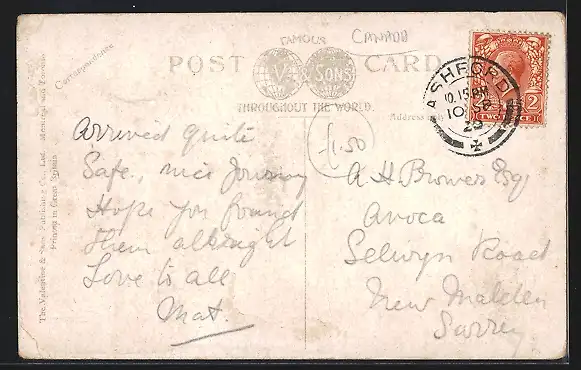 FAMOUS
CANADA
POST CARD
V & SONS
THROUGHOUT THE WORLD.
Correspondence
Address only
The Valentine & Sons Publishing Co., Ltd. Montreal and Toronto
Printed in Great Britain
ASHFORD
10.15 PM
10
23
TWO PENCE
2
£1.50
Arrived quite
Safe, nice Journey
Hope you found
them allright
Love to all
Mat.
A H Browes Esq
Avoca
Selwyn Road
New Malden
Surrey